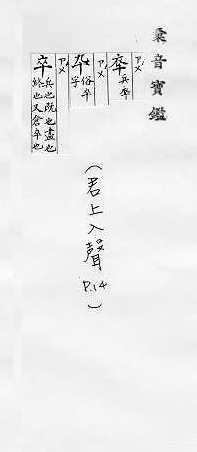 彙音寶鑑
卒 兵卒
俗卒字
卒 兵也既也盡也
終也又倉卒也
(君上入聲 P.14)